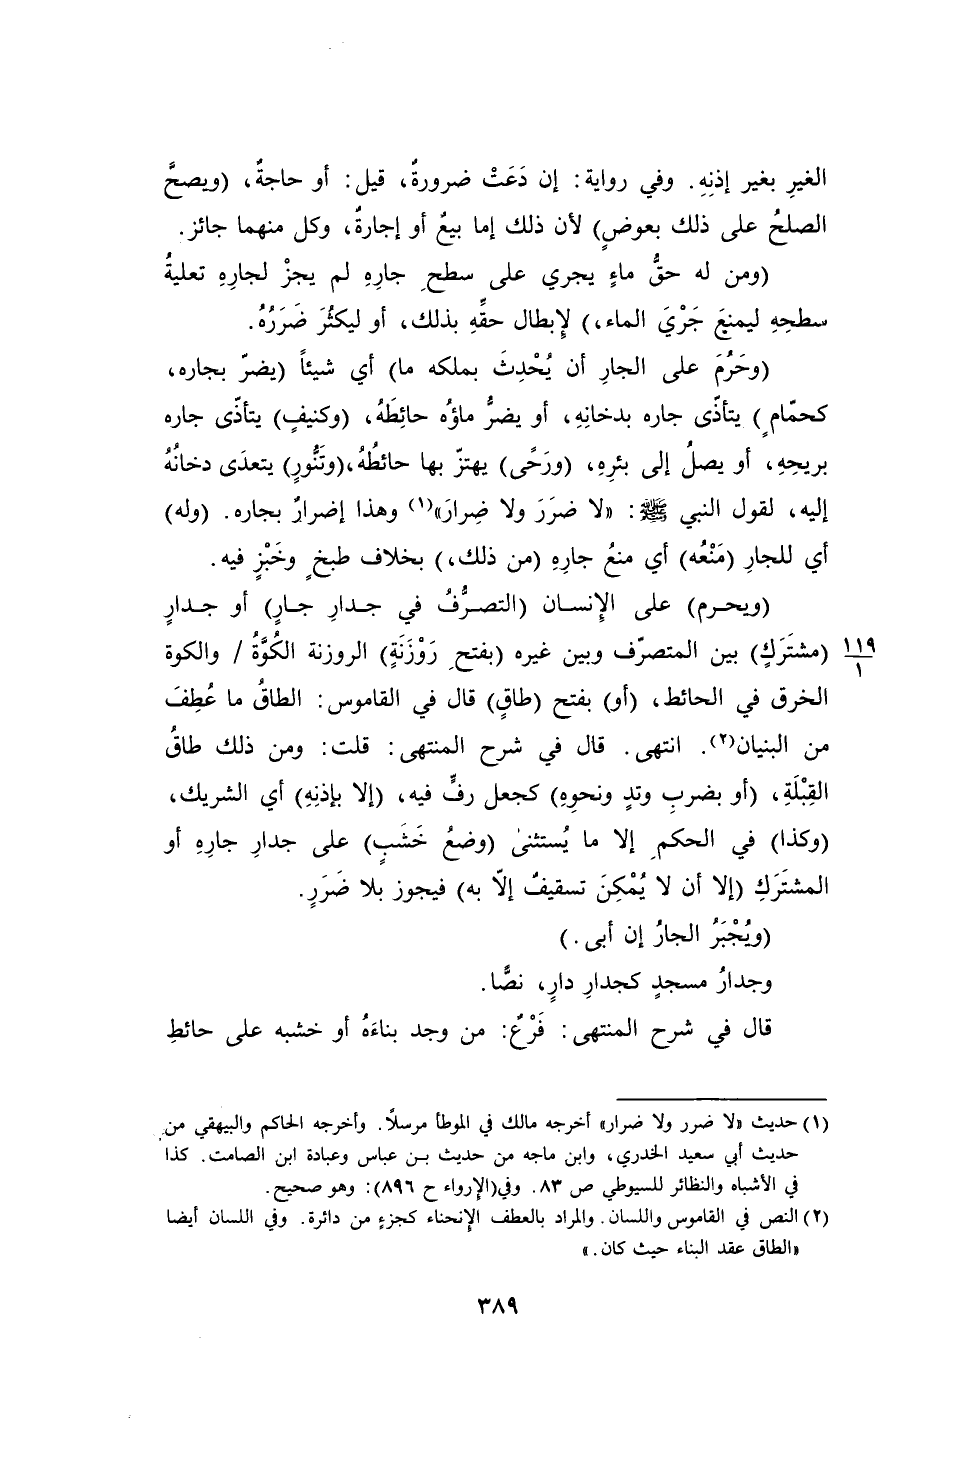 الغيرِ بغير إذنِهِ. وفي رواية: إن دَعَتْ ضرورةٌ، قيل: أو حاجةٌ، (ويصحُّ
الصلحُ على ذلك بعوضٍ) لأن ذلك إما بيعٌ أو إجارةٌ، وكل منهما جائز.
(ومن له حقُّ ماءٍ يجري على سطحِ جارِهِ لم يجزْ لجارِهِ تعليةُ
سطحِهِ ليمنعَ جَرْيَ الماء،) لإبطال حقِّهِ بذلك، أو ليكثُرَ ضَرَرُهُ.
(وحَرُمَ على الجارِ أن يُحْدِثَ بملكه ما) أي شيئاً (يضرّ بجاره،
كحمّامٍ) يتأذّى جاره بدخانِهِ، أو يضرُّ ماؤُه حائِطَهُ، (وكنيفٍ) يتأذّى جاره
بريحِهِ، أو يصلُ إلى بئرِهِ، (ورَحًى) يهتزّ بها حائطُهُ،(وتَنُّورٍ) يتعدَى دخانُهُ
إليه، لقول النبي ﷺ: «لا ضرَرَ ولا ضِرارَ»(١) وهذا إضرارٌ بجاره. (وله)
أي للجارِ (مَنْعُه) أي منعُ جارِهِ (من ذلك،) بخلاف طبخٍ وخَبْزٍ فيه.
(ويحرم) على الإنسان (التصرُّفُ في جدارِ جارٍ) أو جدارٍ
(مشتَرَكٍ) بين المتصرّف وبين غيره (بفتحِ رَوْزَنَةٍ) الروزنة الكُوَّةُ / والكوة
١١٩
١
الخرق في الحائط، (أو) بفتح (طاقٍ) قال في القاموس: الطاقُ ما عُطِفَ
من البنيان(٢). انتهى. قال في شرح المنتهى: قلت: ومن ذلك طاقُ
القِبْلَةِ، (أو بضربِ وتدٍ ونحوِهِ) كجعل رفٍّ فيه، (إلا بإذنِهِ) أي الشريك،
(وكذا) في الحكمِ إلا ما يُستثنىٰ (وضعُ خَشَبٍ) على جدارِ جارِهِ أو
المشتَرَكِ (إلا أن لا يُمْكِنَ تسقيفٌ إلّا به) فيجوز بلا ضَرَرٍ.
(ويُجْبَرُ الجارُ إن أبى.)
وجدارُ مسجدٍ كجدارِ دارٍ، نصًّا.
قال في شرح المنتهى: فَرْعٌ: من وجد بناءَهُ أو خشبه على حائطِ
(١) حديث «لا ضرر ولا ضرار» أخرجه مالك في الموطأ مرسلاً. وأخرجه الحاكم والبيهقي من
حديث أبي سعيد الخدري، وابن ماجه من حديث بن عباس وعبادة ابن الصامت. كذا
في الأشباه والنظائر للسيوطي ص ٨٣. وفي(الإرواء ح ٨٩٦): وهو صحيح.
(٢) النص في القاموس واللسان. والمراد بالعطف الإنحناء كجزءٍ من دائرة. وفي اللسان أيضا
«الطاق عقد البناء حيث كان.»
٣٨٩